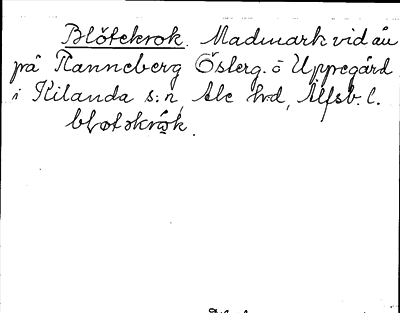 Blötekrok. Madmark vid ån
på Ranneberg Österg. o Uppegård
i Kilanda s:n, Ale hrd, Älfsb. l.
bløtəkråk.